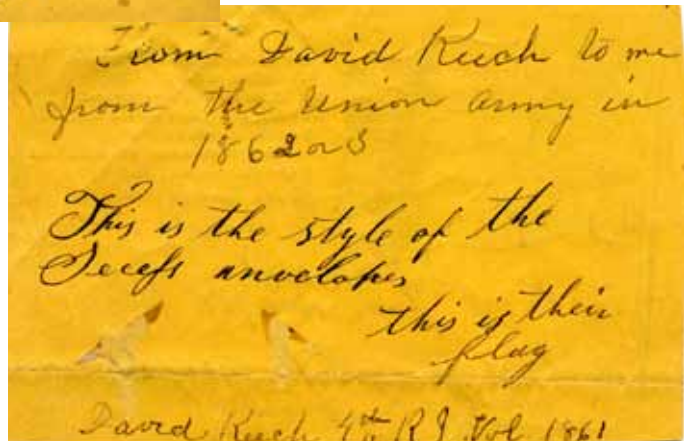 From David Kuch to me
from the Union army in
1862 or 3
This is the style of the
Secess anvelopes
this is their
flag
David Kuch 4th R I Vol 1861